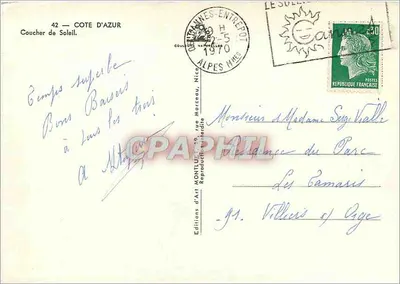 42 — COTE D'AZUR
Coucher de Soleil.
Temps superbe
Bons Baisers
à tous les trois
CANNES-ENTREPOT
H
2-5
1970
ALPES Mmes
LE SOLEIL
Cannes
0,30
POSTES
REPUBLIQUE FRANÇAISE
Editions d'Art MONTLUET, rue Marceau, Nice
Reproduction interdite
CRAPHTI
Monsieur et Madame
Résidence du Parc
Les Tamaris
91. Villiers s/ Orge